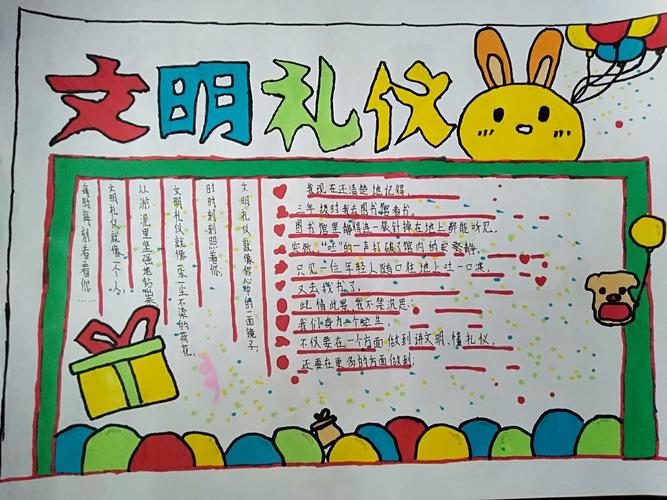 文明礼仪
文明礼仪就像你心中的一面镜子,
时时刻刻照着你。
文明礼仪就像一朵一尘不染的荷花,
从淤泥里坚强地钻出来
文明礼仪就像一个人,
每时每刻看着你……
我现在还清楚地记得,
三年级时我去图书馆看书。
图书馆里静得连一根针掉在地上都能听见。
突然,“呸”的一声打破了馆内的安静,
只见一位年轻人随口往地上吐一口痰,
又去找书了.
此情此景,我不禁沉思:
我们身为一个学生,
不仅要在一个方面做到讲文明、懂礼仪,
还要在更多的方面做到.